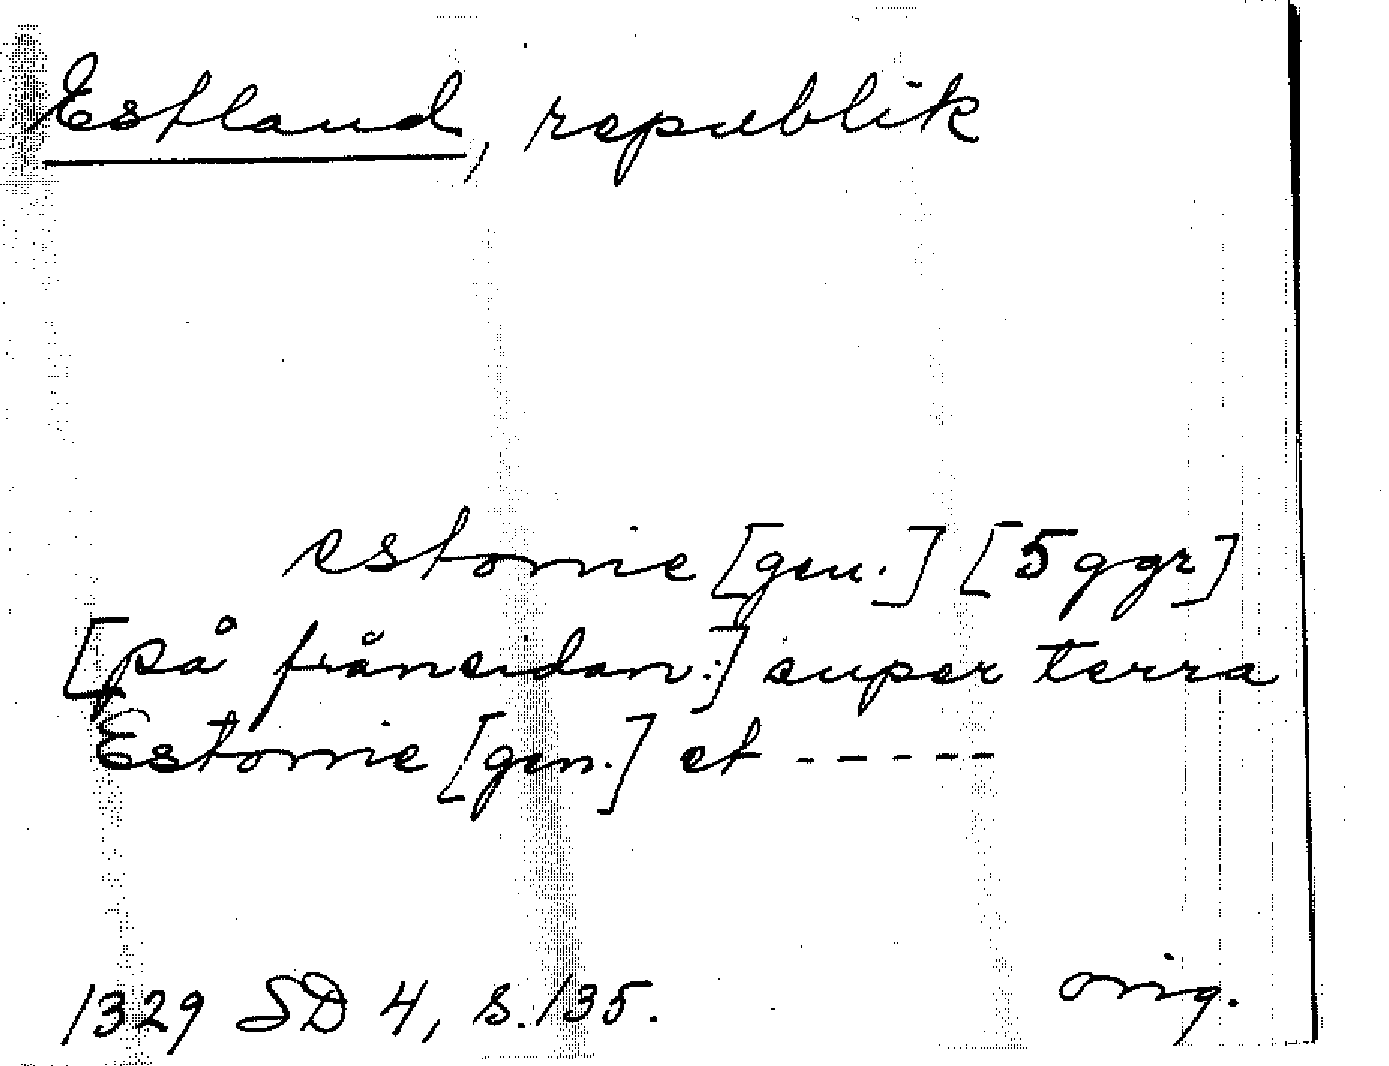 Estland, republik
estonie [gen.] [5 ggr]
[på frånsidan:] super terra
Estonie [gen.] et - - - - -
1329 SD 4, s. 135. orig.